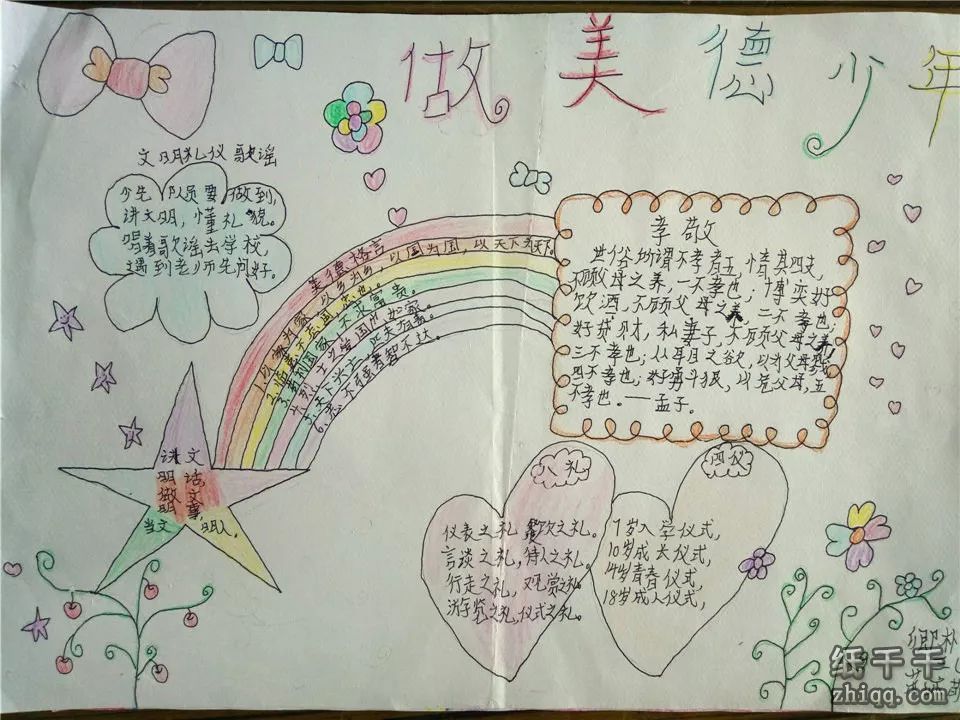 做美德少年
文明礼仪歌谣
少先队员要做到,
讲文明,懂礼貌。
唱着歌谣去学校,
遇到老师先问好。
美德格言
以乡为乡,以国为国,以天下为天下。
不求富贵。
6.志不强者智不达。
孝敬
世俗所谓不孝者五,惰其四支,
不顾父母之养,一不孝也;博奕好
饮酒,不顾父母之养,二不孝也;
好货财,私妻子,不顾父母之养,
三不孝也;从耳目之欲,以为父母戮,
四不孝也;好勇斗狠,以危父母,五
不孝也。——孟子。
讲文
明话
做文
明事,
当文明人。
八礼
仪表之礼,餐饮之礼。
言谈之礼,待人之礼。
行走之礼,观赏之礼。
游览之礼,仪式之礼。
四仪
7岁入学仪式,
10岁成长仪式,
14岁青春仪式,
18岁成人仪式,
纸千千
zhiqq.com